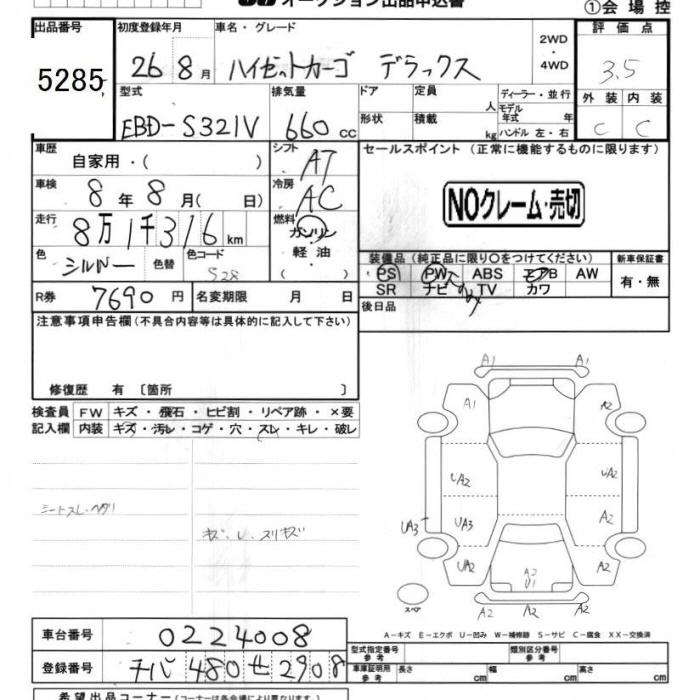 オークション出品申込書
①会場控
出品番号 初度登録年月 車名・グレード 2WD・4WD 評価点
5285 26 8月 ハイゼットカーゴ デラックス 3.5
型式 排気量 ドア 定員 人 ディーラー・並行 外装 内装
EBD-S321V 660cc 形状 積載 kg モデル年式 年 ハンドル 左・右 C C
車歴 自家用・( ) シフト AT セールスポイント (正常に機能するものに限ります)
車検 8年8月( 日) 冷房 AC NOクレーム・売切
走行 8万1千316km 燃料 ガソリン
軽油
( )
色 シルバー 色替 色コード S28
装備品 (純正品に限り○をつけてください) 新車保証書
PS PW ABS エアB AW 有・無
SR ナビ のみ TV カワ
R券 7690円 名変期限 月 日 後日品
注意事項申告欄 (不具合内容等は具体的に記入して下さい)
修復歴 有 〔箇所 〕
検査員 FW キズ・飛石・ヒビ割・リペア跡・×要
記入欄 内装 キズ・汚レ・コゲ・穴・スレ・キレ・破レ
シートスレ・ヘタリ
キズ・U・スリキズ
A1 A1
A1 A2
UA2 UA2
UA3 UA3 A2
UA2 A2 U1 A2
スペア A2 A2 A2
A-キズ E-エクボ U-凹み W-補修跡 S-サビ C-腐食 XX-交換済
車台番号 0224008
型式指定番号 参考 類別区分番号 参考
登録番号 チバ 480 せ 2908
車庫証明用 参考 長さ cm 幅 cm 高さ cm
希望出品コーナー (コーナーは各会場により異なります。)